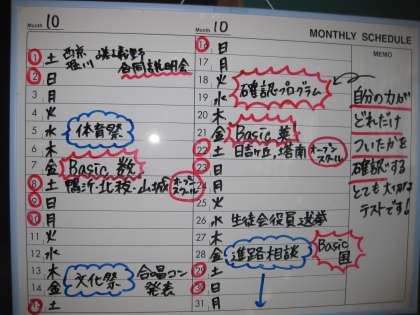 Month 10
Month 10
MONTHLY SCHEDULE
1 土 西京 嵯峨野
堀川 合同説明会
2 日
3 月
4 火
5 水 体育祭
6 木
7 金 Basic 数
8 土 鴨沂・北稜・山城 オープンスクール
9 日
10 月
11 火
12 水
13 木 文化祭 合唱コン
14 金 発表
土
16 日
17 月
18 火 確認プログラム
19 水
20 木
21 金 Basic 英
22 土 日吉ヶ丘, 塔南 オープンスクール
23 日
24 月
25 火
26 水 生徒会役員選挙
27 木 Basic 国
28 金 進路相談
29 土
30 日
31 月
MEMO
自分の力が
どれだけ
ついたかを
確認する
とても大切な
テストです!